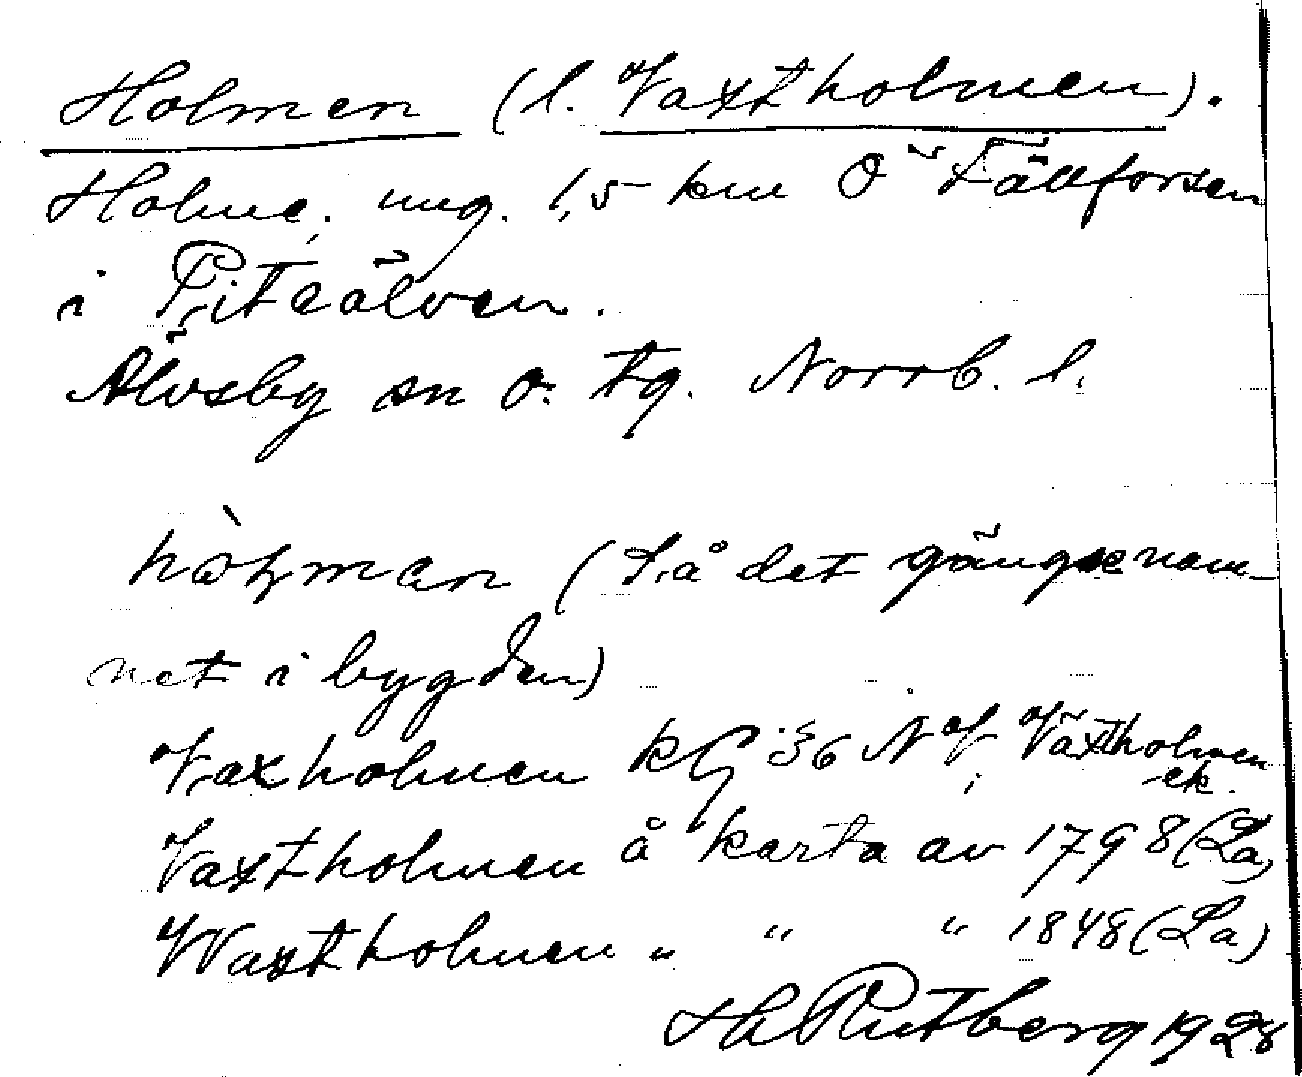 Holmen (l. Vaxtholmen).
Holme, ung. 1,5 km Ö Fällforsen
i Piteälven.
Älvsby sn o. tg. Norrb. l.
hòlman (Så det gängse nam-
net i bygden)
Vaxholmen kG 36 NV, Växtholmen
ek.
Vaxtholmen å karta av 1798 (La)
Waxtholmen " " " 1848 (La)
Hh Rutberg 1928